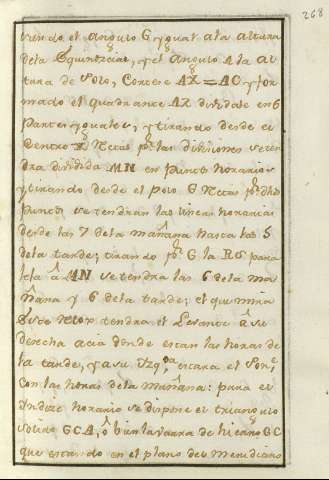 268
viendo el angulo G ygual a la altura
dela Equinoccial, y el angulo A la al
tura de Polo, Cortese AX = AO y for
mado el quadrante AX dividase en 6
Partes yguales, y tirando desde el
Centro X Rectas por las diviciones se ten
dra dividida MN en Puntos horarios
y tirando desde el Polo G Rectas por dhos
Puntos se tendran las lineas horarias
desde las 7 dela mañana hasta las 5
dela tarde; tirando por G la RS para
lela â MN se tendra las 6 dela ma
ñana y 6 dela tarde; el que mira
tendra el Levante â su
derecha acia donde estan las horas de
la tarde, y a su Yzqda estara el Pone
con las horas dela mañana: para el
Yndice horario se dispone el triangulo
solido GCA, ô bien la varra de hierro GC
que estando en el plano del meridiano